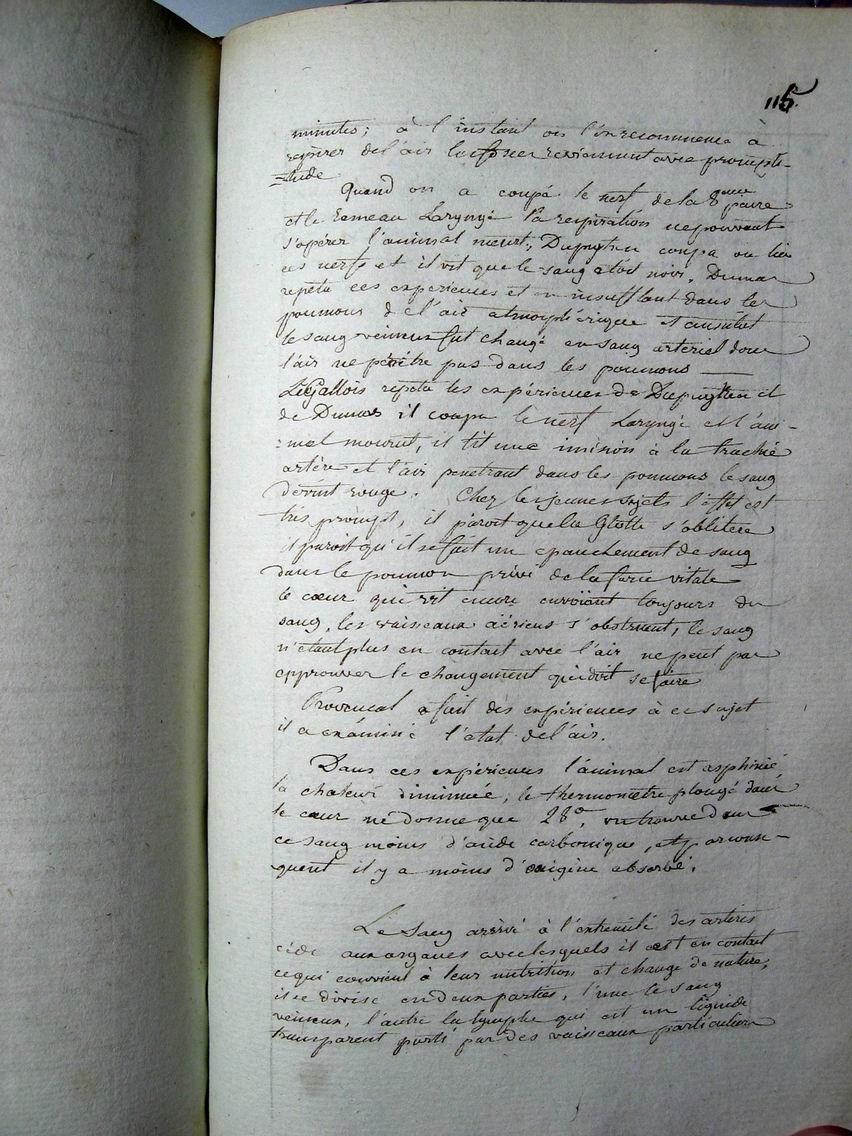 115.
minutes; à l'instant où l'on recommence à
respirer de l'air les forces reviennent avec prompti-
=tude
Quand on a coupé le nerf de la 8eme paire
et le rameau Laryngé la respiration ne pouvant
s'opérer l'animal meurt; Dupuytren coupa ou lia
ces nerfs et il vit que le sang etoit noir. Dumas
repeta ces experiences et en insufflant dans les
poumons de l'air atmosphérique
le sang veineux fut changé en sang arteriel donc
l'air ne pénétre pas dans les poumons
LeGallois repeta les expériences de Dupuytren et
de Dumas il coupa le nerf Laryngé et l'ani-
=mal mourut, il fit une insision à la trachée
artère et l'air penetrant dans les poumons le sang
devint rouge. Chez les jeunes sujets l'effet est
très prompt, il paroit que la Glotte s'oblitère
il paroit qu'il se fait un epanchement de sang
dans le poumon privé de la force vitale
le cœur qui vit encore envoiant toujours du
sang, les vaisseaux aériens s'obstruent, le sang
n'etant plus en contact avec l'air ne peut pas
epprouver le changement qui doit se faire
Provencal a fait des expériences à ce sujet
il a examiné l'etat de l'air.
Dans ces expériences l'animal est asphixié
la chaleur diminuée, le thermomètre plongé dans
le cœur ne donne que 28°, on trouve dans
ce sang moins d'acide carbonique, et par conse-
quent il y a moins d'oxigène absorbé.
Le Sang arrivé à l'extremité des arteres
cède aux organes avec lesquels il est en contact
ce qui convient à leur nutrition et change de nature,
il se divise en deux parties, l'une le sang
veineux, l'autre la lymphe qui est un liquide
transparent porté par des vaisseaux particuliers